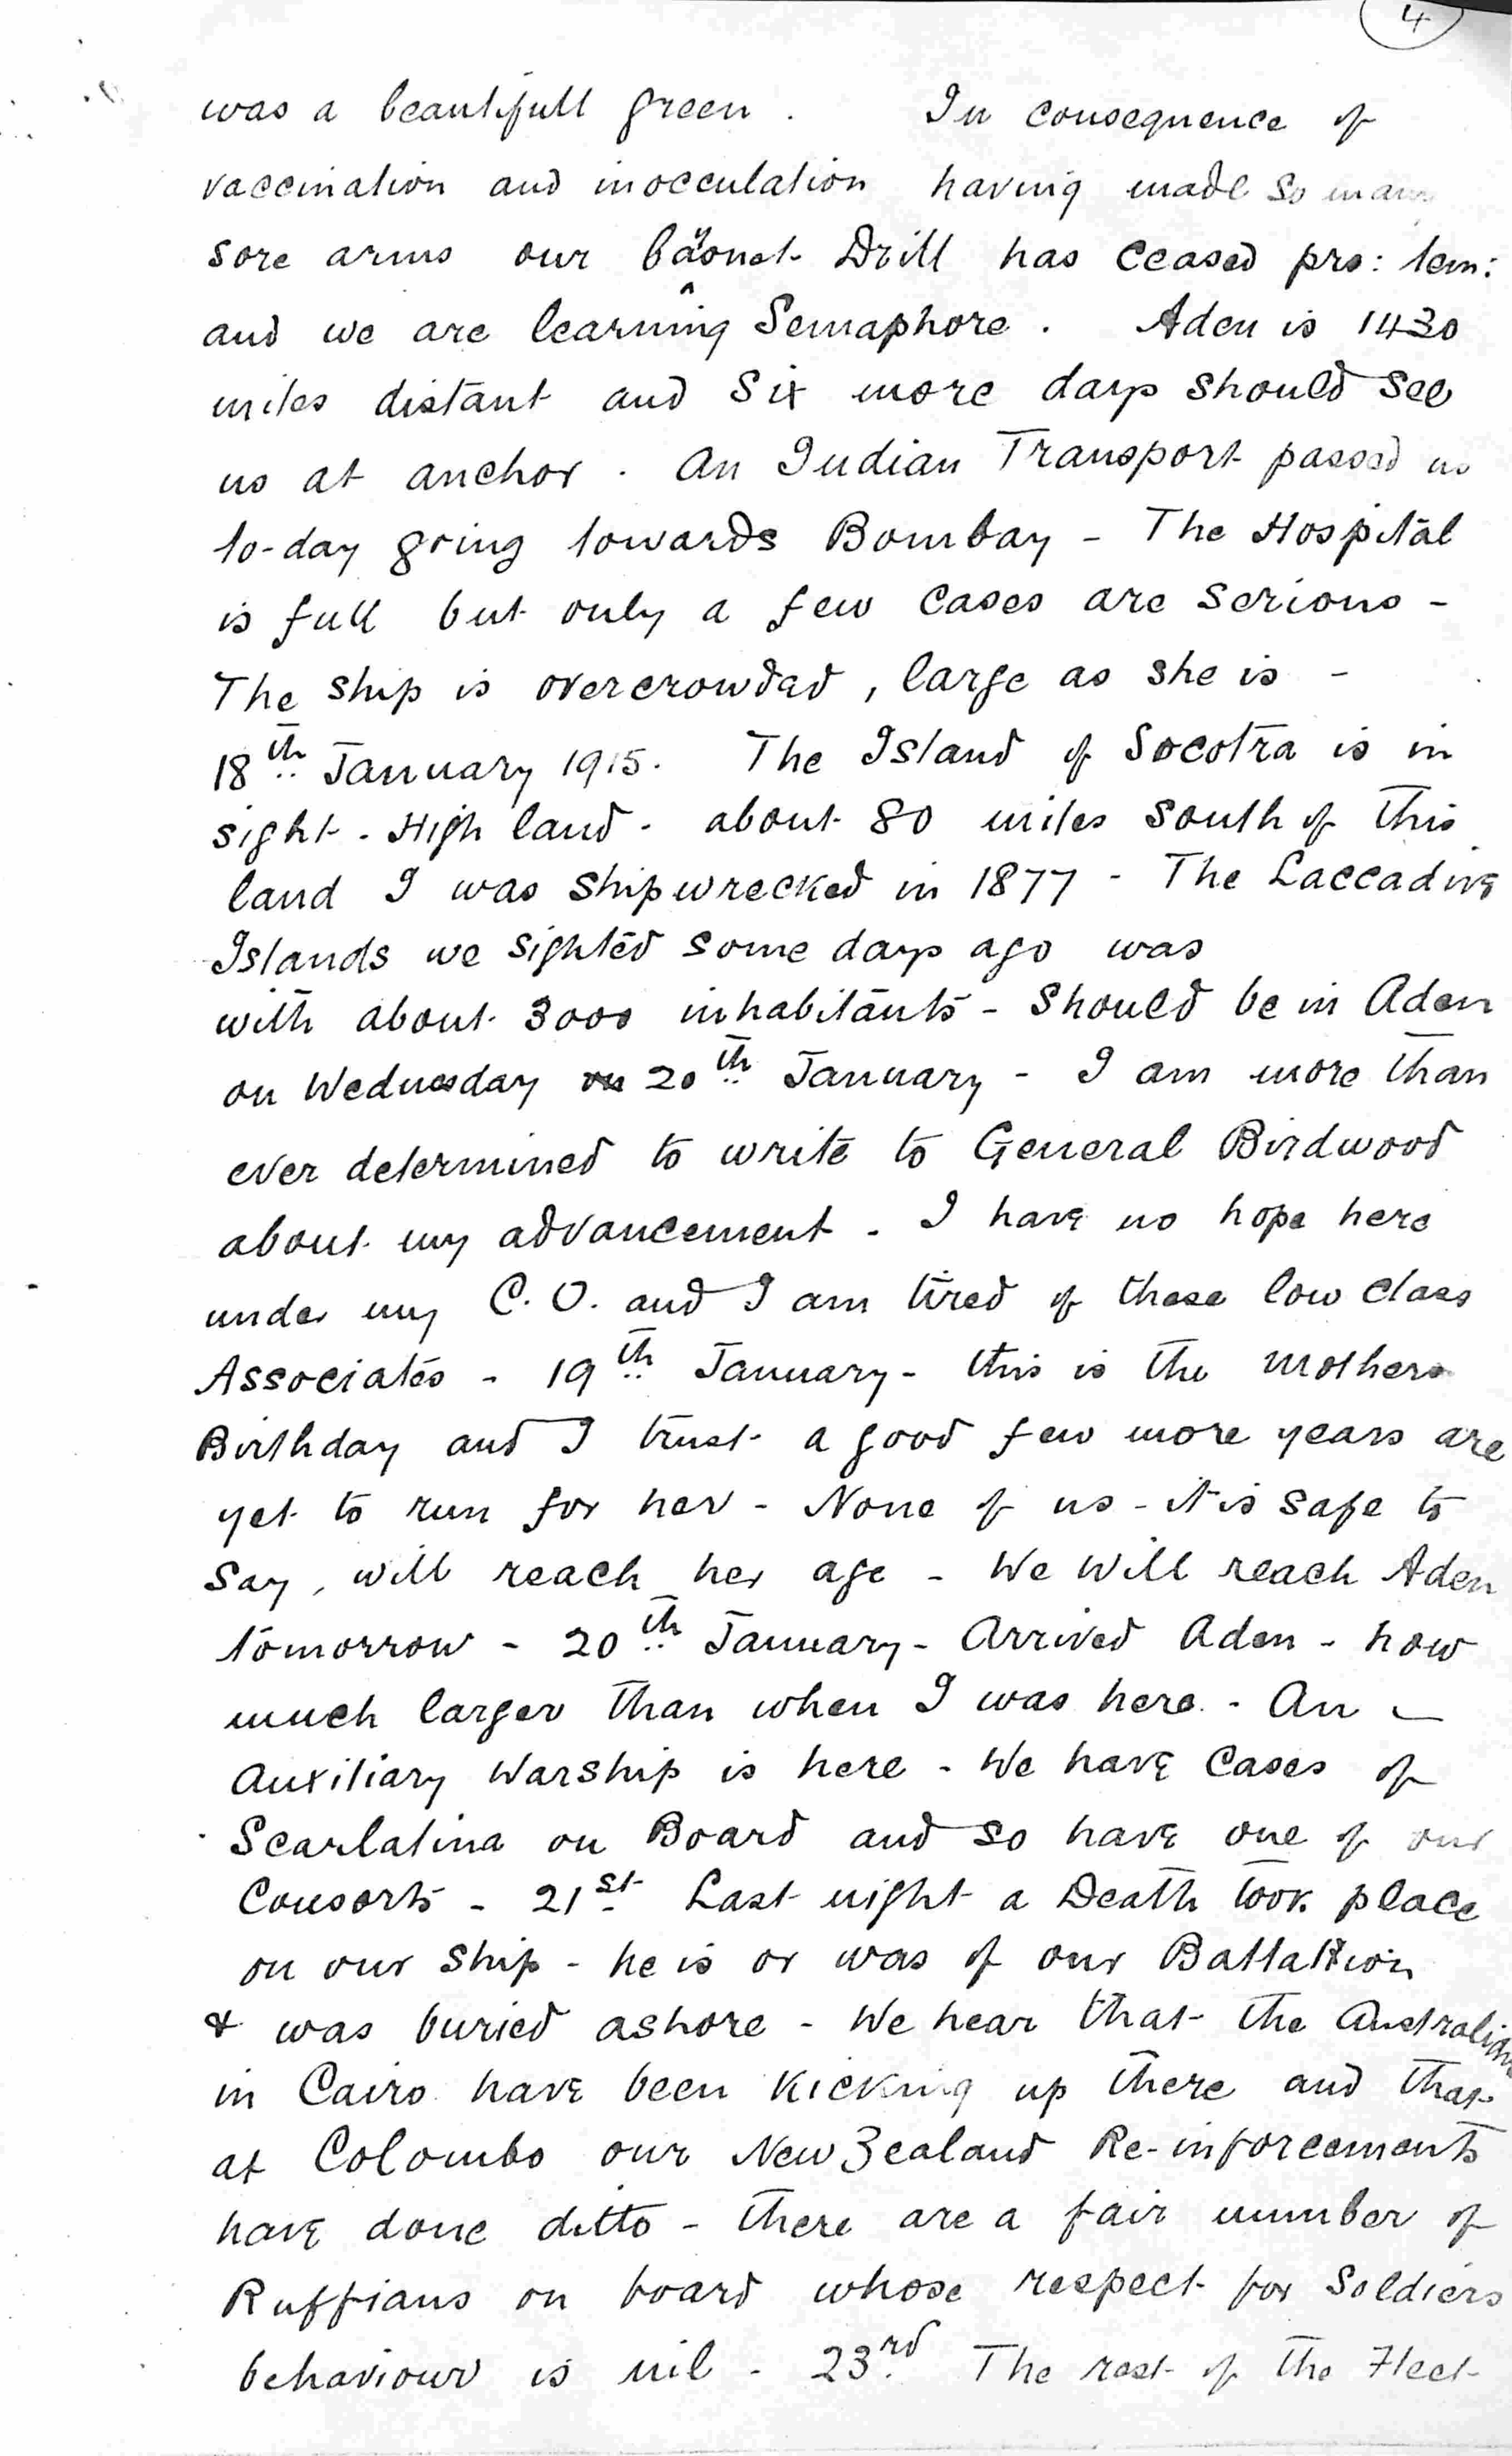 4
was a beautifull green . In consequence of
vaccination and inocculation having made so many
sore arms our bayonet Drill has ceased pro: tem:
and we are learning Semaphore . Aden is 1430
miles distant and six more days should see
us at anchor . An Indian Transport passed us
to-day going towards Bombay - The Hospital
is full but only a few cases are serious -
The ship is overcrowded , large as she is -
18th January 1915. The Island of Socotra is in
sight - High land - about 80 miles south of this
land I was shipwrecked in 1877 - The Laccadive
Islands we sighted some days ago was
with about 3000 inhabitants - Should be in Aden
on Wednesday 20th January - I am more than
ever determined to write to General Birdwood
about my advancement - I have no hope here
under my C.O. and I am tired of these low class
Associates - 19th January - this is the mothers
Birthday and I trust a good few more years are
yet to run for her - None of us - it is safe to
say , will reach her age - We will reach Aden
tomorrow - 20th January - Arrived Aden - how
much larger than when I was here. - An -
Auxiliary Warship is here - We have cases of
Scarlatina on Board and so have one of our
Consorts - 21st Last night a Death took place
on our ship - he is or was of our Battaltion
& was buried ashore - We hear that the Australians
in Cairo have been kicking up there and that
at Colombo our New Zealand Re-inforcements
have done ditto - there are a fair number of
Ruffians on board whose respect for Soldiers
behaviour is nil - 23rd The rest of the Fleet